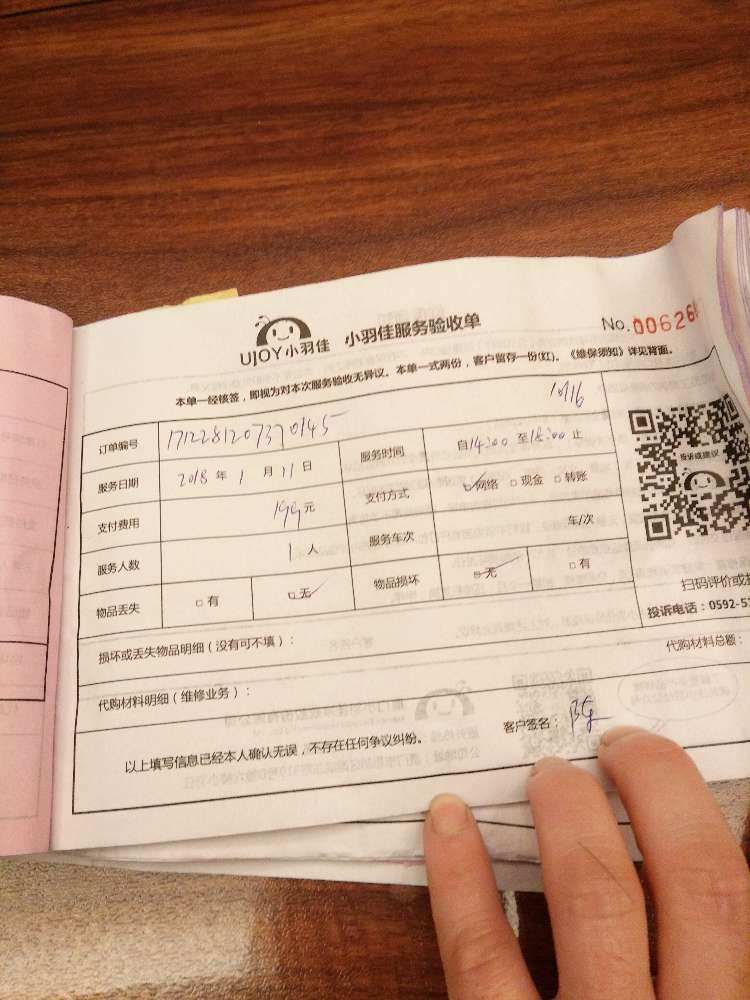 UJOY小羽佳 小羽佳服务验收单 No.00626
本单一经核签，即视为对本次服务验收无异议。本单一式两份，客户留存一份(红)。《维保须知》详见背面。
订单编号 1712281207370145 服务时间 自14:00 至18:00 止
服务日期 2018 年 1 月 11 日 支付方式 网络 现金 转账
支付费用 199元 服务车次 车/次
服务人数 1 人 物品损坏 无 有
物品丢失 有 无
投诉或建议
扫码评价或
投诉电话：0592-5
损坏或丢失物品明细（没有可不填）：
代购材料总额：
代购材料明细（维修业务）：
以上填写信息已经本人确认无误，不存在任何争议纠纷。 客户签名：